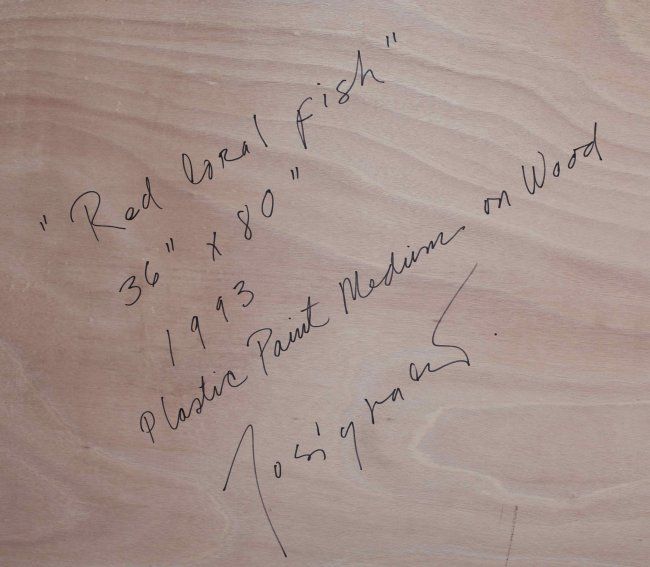 "Red Coral Fish"
36" x 80"
1993
Plastic Paint Medium on Wood